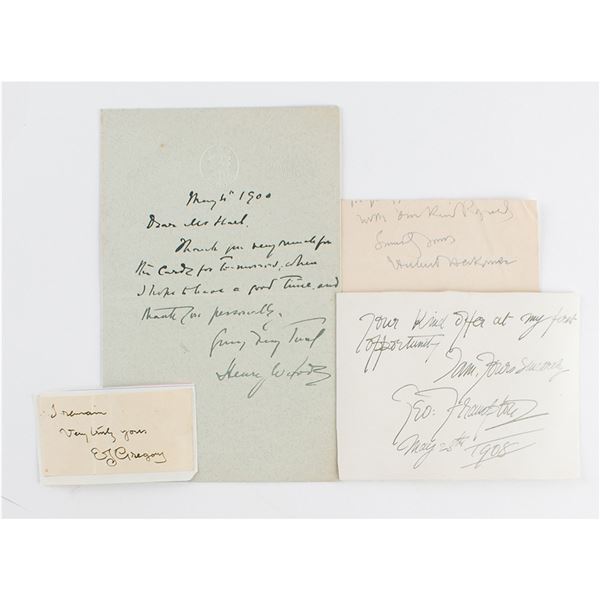 May 4th 1900
Dear
Thank you very much for
the Cards for to-morrow, when
I hope to have a good time, and
thank you personally.
Yours very truly
Henry Woods
with our kind Regards
Sincerely Yours
Hubert Herkomer
Your kind offer at my first
opportunity
I am, Yours Sincerely
Geo: Frampton
May 28th 1908
I remain
Very truly yours
EJ Gregory